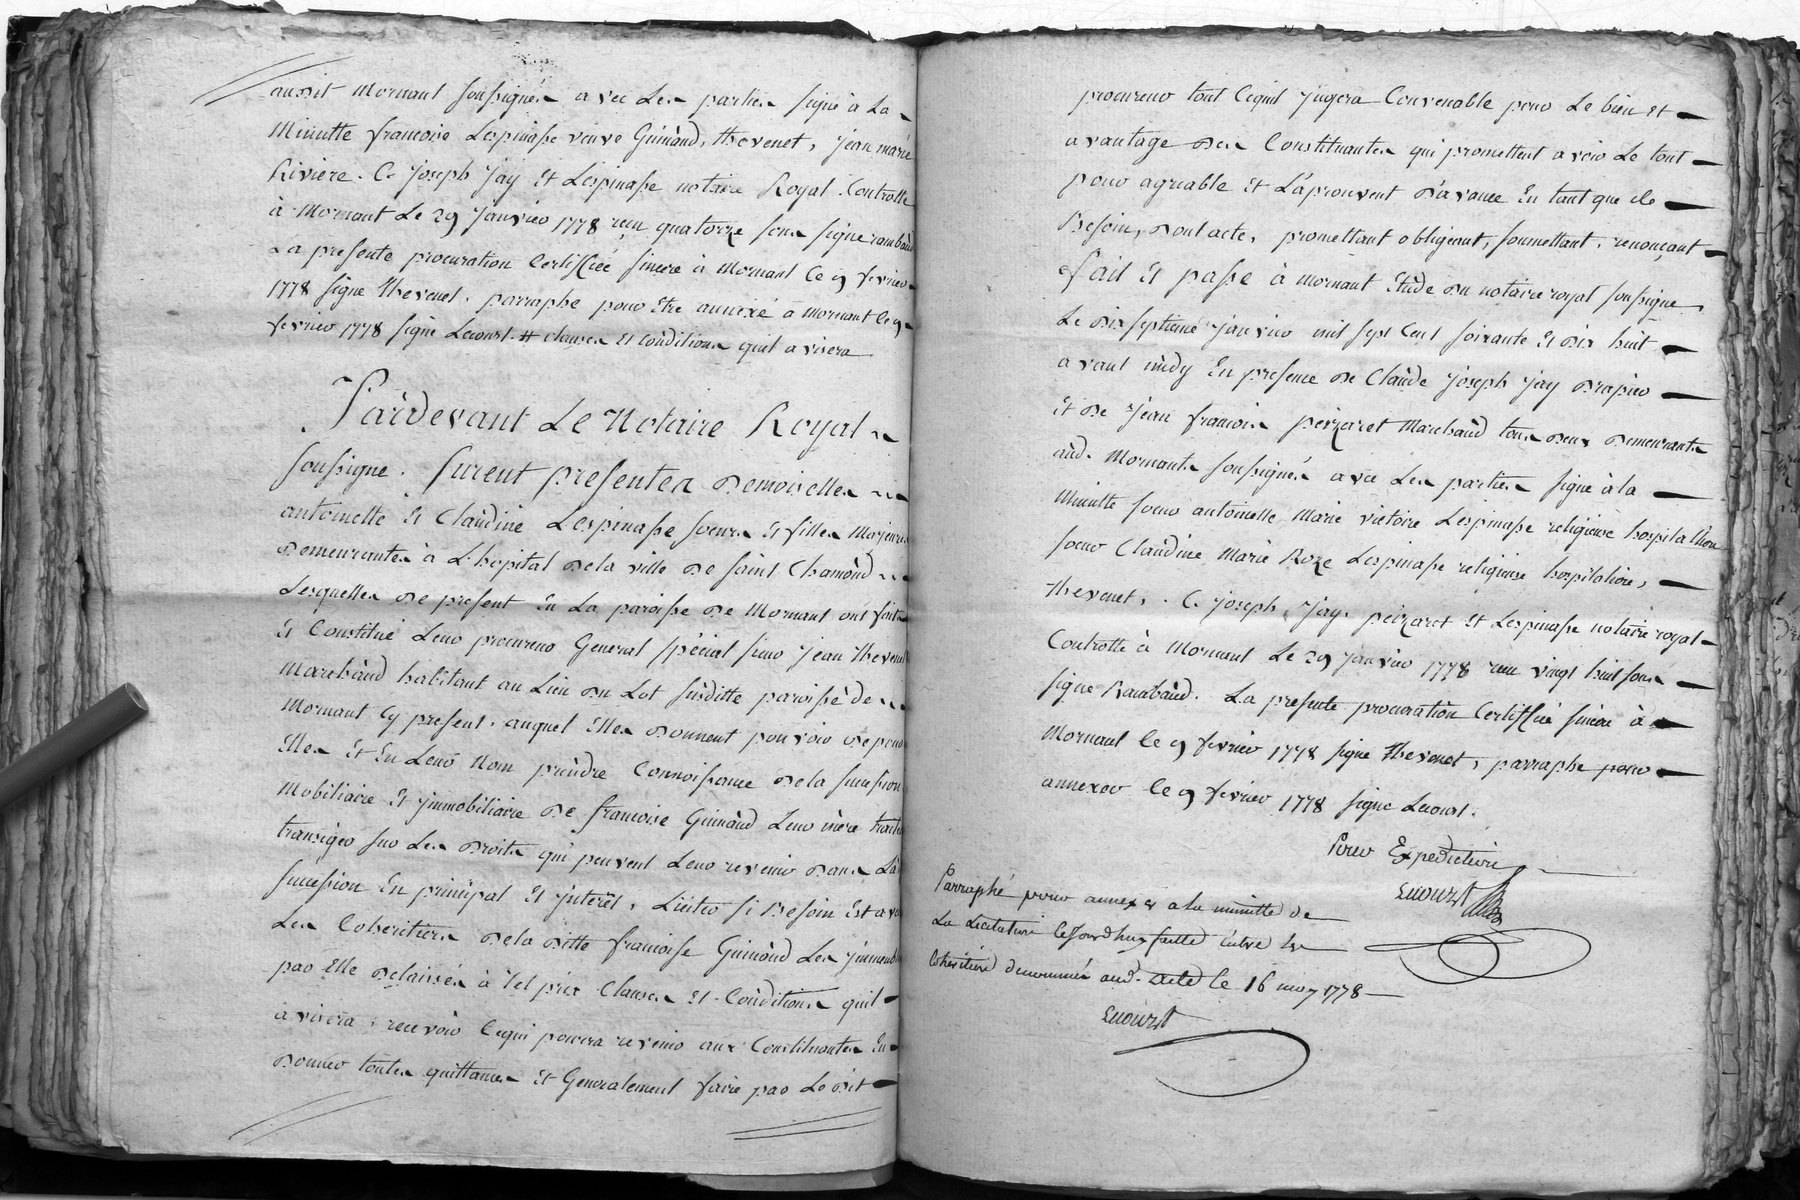 audit Mornant soussignés avec Les parties signé à La
Minutte francoise Lespinasse veuve Guinand, thevenet, jean marie
Riviere. C. joseph jay et Lespinasse notaire Royal. Controllé
à Mornant Le 29 janvier 1778 reçu quatorze sous signé rambaud
La presente procuration Certiffiée sincere à Mornant Ce 9 fevrier
1778 signé thevenet. parraphé pour être annexé à Mornant le 9
fevrier 1778 signé Lecourt. # clauses et conditions quil avisera
Pardevant Le Notaire Royal
soussigné. furent presentes Demoiselles
antoinette et Claudine Lespinasse soeurs et filles Majeures
demeurantes à L'hopital dela ville de saint Chamond
Lesquelles de present en La paroisse de Mornant ont fait
et Constitué Leur procureur General spécial sieur jean thevenet
Marchand habitant au Lieu du Lot susditte paroisse de
Mornant cy present. auquel Elles donnent pouvoir de pour
Elles et En Leur Nom prendre Connoissance dela succession
Mobiliaire et jmmobiliaire de francoise Guinand Leur mère traiter
transiger sur Les droits qui peuvent Leur revenir dans La
succession En principal et jnterêt, Liciter si Besoin est avec
Les Coheritiers dela ditte francoise Guinand Les jmmeubles
par Elle delaissés à tel prix Clauses et Conditions quil
avisera, recevoir Cequi pourra revenir aux Constituantes En
donner toutes quittances et Generalement faire par Ledit
procureur tout Cequil jugera Convenable pour Le bien et
avantage des Constituantes qui promettent avoir Le tout
pour agreable et L'aprouvent d'avance En tant que de
Besoin, dont acte, promettant obligeant, soumettant, renonçant
fait et passé à Mornant Etude du notaire royal soussigné
Le dix septieme janvier mil sept Cent soixante et dix huit
avant midy En presence de Claude joseph jay drapier
et de jean francois peyzaret Marchand tous deux demeurants
aud. Mornant soussignés avec Les parties signé à la
Minutte soeur antoinette Marie victoire Lespinasse religieuse hospitaliere
soeur Claudine Marie Roze Lespinasse religieuse hospitaliere,
thevenet, C. joseph jay. peyzaret et Lespinasse notaire royal
Controllé à Mornant Le 29 janvier 1778 reçu vingt huit sous
signé Rambaud. La presente procuration Certiffié sincere à
Mornant le 9 fevrier 1778 signé thevenet, parraphé pour
annexer le 9 fevrier 1778 signé Lecourt.
Pour Expedition
Lecourt
Parraphé pour annexer a la minutte de
La Licitation Cejourdhuy faitte entre Les
Coheritiers denommés aud. acte le 16 may 1778
Lecourt